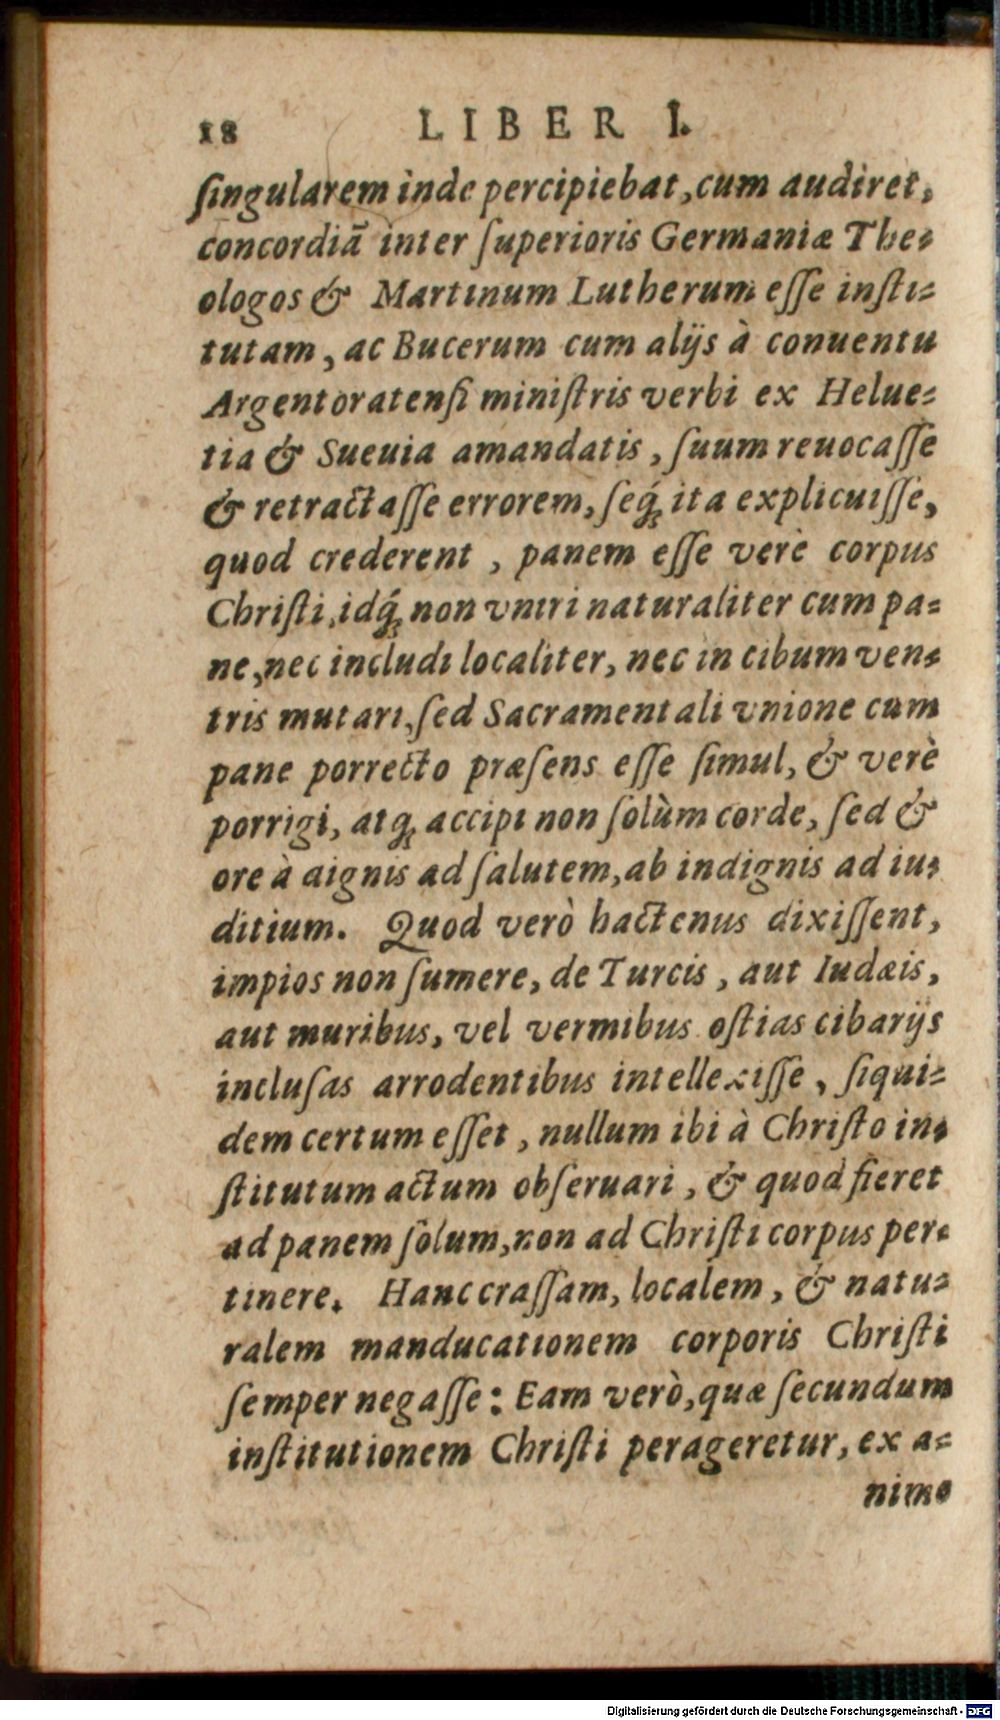 18 LIBER I.
ſingularem inde percipiebat, cum audiret,
concordiã inter ſuperioris Germaniæ The-
ologos & Martinum Lutherum eſſe inſti-
tutam, ac Bucerum cum alijs à conuentu
Argentoratenſi miniſtris verbi ex Helue-
tia & Sueuia amandatis, ſuum reuocaſſe
& retractaſſe errorem, ſeq́ꝫ ita explicuiſſe,
quod crederent, panem eſſe verè corpus
Chriſti, idq́ꝫ non vniri naturaliter cum pa-
ne, nec includi localiter, nec in cibum ven-
tris mutari, ſed Sacramentali vnione cum
pane porrecto præſens eſſe ſimul, & verè
porrigi, atqꝫ accipi non ſolùm corde, ſed &
ore à dignis ad ſalutem, ab indignis ad iu-
ditium. Quod verò hactenus dixiſſent,
impios non ſumere, de Turcis, aut Iudæis,
aut muribus, vel vermibus oſtias cibarijs
incluſas arrodentibus intellexiſſe, ſiqui-
dem certum eſſet, nullum ibi à Chriſto in-
ſtitutum actum obſeruari, & quod fieret
ad panem ſolum, non ad Chriſti corpus per-
tinere. Hanc craſſam, localem, & natu-
ralem manducationem corporis Chriſti
ſemper negaſſe: Eam verò, quæ ſecundum
inſtitutionem Chriſti perageretur, ex a-
nimo
Digitalisierung gefördert durch die Deutsche Forschungsgemeinschaft - DFG